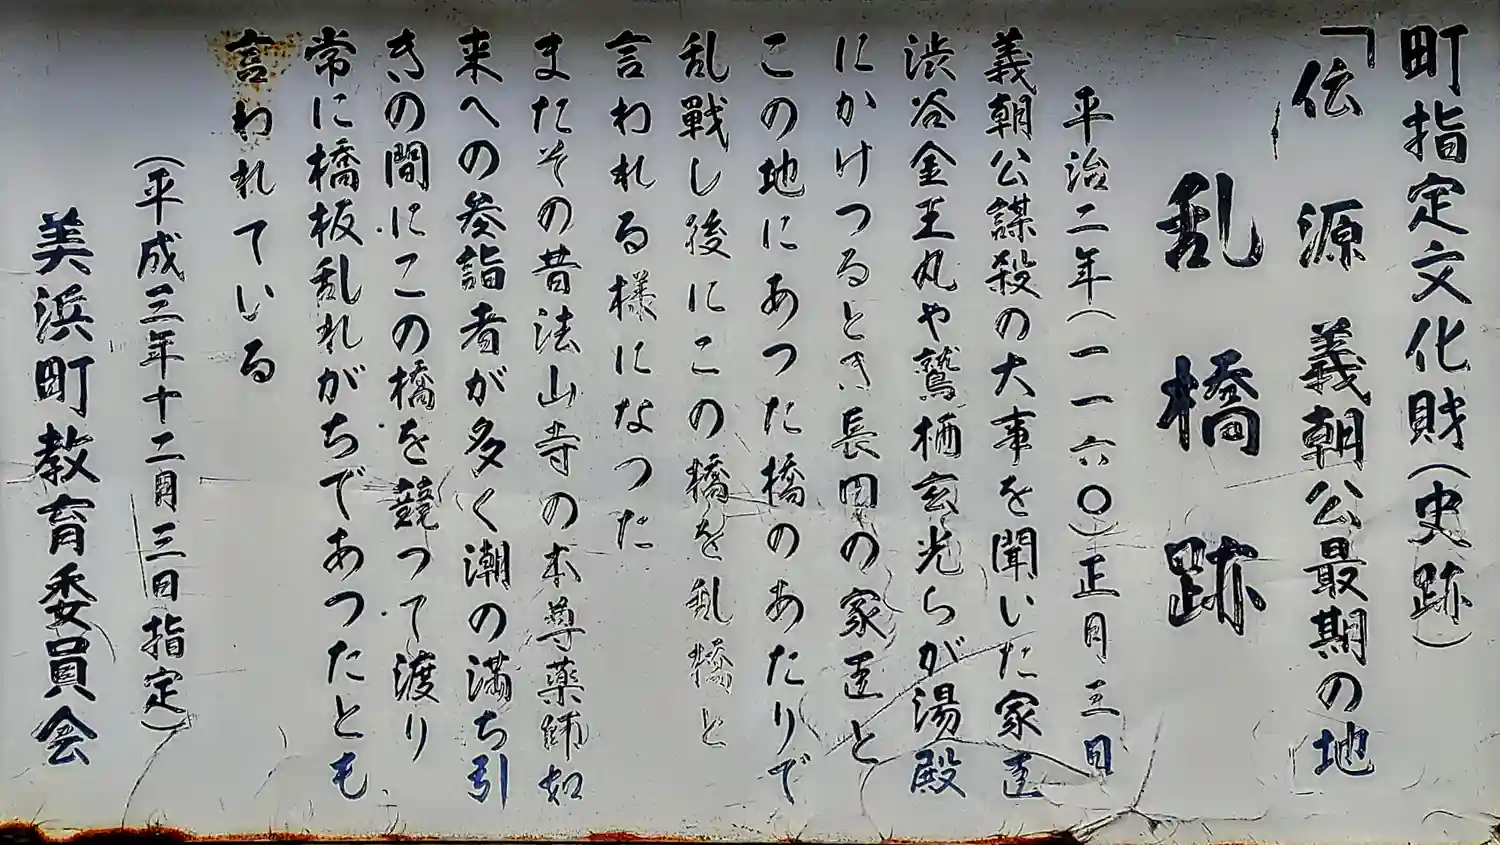 町指定文化財(史跡)
「伝 源 義朝公最期の地
乱橋跡
平治二年(一一六〇)正月三日
義朝公謀殺の大事を聞いた家臣
渋谷金王丸や鷲栖玄光らが湯殿
にかけつるとき長田の家臣と
この地にあつた橋のあたりで
乱戦し後にこの橋を乱橋と
言われる様になつた
またその昔法山寺の本尊薬師如
来への参詣者が多く潮の満ち引
きの間にこの橋を競つて渡り
常に橋板乱れがちであつたとも
言われている
(平成三年十二月三日指定)
美浜町教育委員会